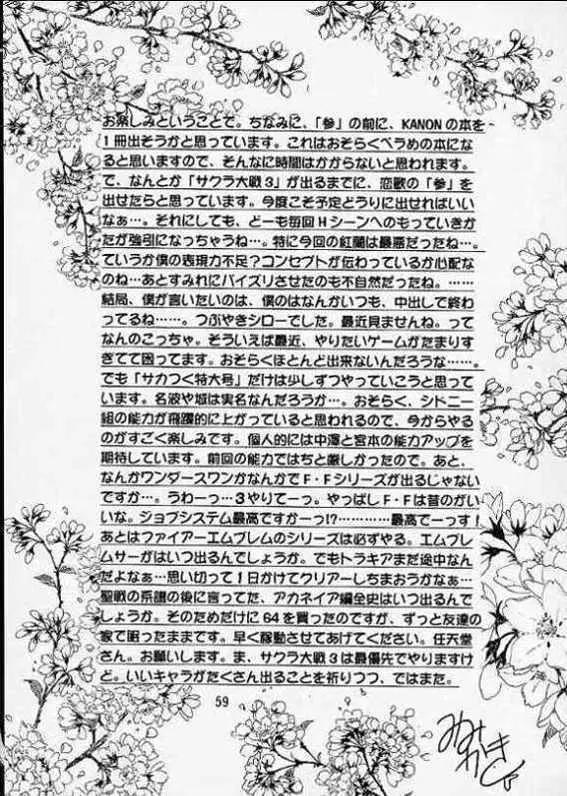 お楽しみということで。ちなみに、「参」の前に、KANONの本を
1冊出そうかと思っています。これはおそらくペラめの本にな
ると思いますので、そんなに時間はかからないと思われます。
で、なんとか「サクラ大戦3」が出るまでに、恋歌の「参」を
出せたらと思っています。今度こそ予定どうりに出せればいい
なぁ…。それにしても、どーも毎回Hシーンへのもっていきか
たが強引になっちゃうね…。特に今回の紅蘭は最悪だったね…。
ていうか僕の表現力不足?コンセプトが伝わっているか心配な
のね…あとすみれにパイズリさせたのも不自然だったね。……
結局、僕が言いたいのは、僕のはなんかいつも、中出しで終わ
ってるね……。つぶやきシローでした。最近見ませんね。って
なんのこっちゃ。そういえば最近、やりたいゲームがたまりす
ぎてて困ってます。おそらくほとんど出来ないんだろうな……。
でも「サカつく特大号」だけは少しずつやっていこうと思って
います。名波や城は実名なんだろうか…。おそらく、シドニー
組の能力が飛躍的に上がっていると思われるので、今からやる
のがすごく楽しみです。個人的には中澤と宮本の能力アップを
期待しています。前回の能力ではちと厳しかったので。あと、
なんかワンダースワンかなんかでF・Fシリーズが出るじゃない
ですか…。うわーっ…3やりてーっ。やっぱしF・Fは昔のがい
いな。ジョブシステム最高ですかーっ!?…………最高でーっす!
あとはファイアーエムブレムのシリーズは必ずやる。エムブレ
ムサーガはいつ出るんでしょうか。でもトラキアまだ途中なん
だよなぁ…思い切って1日かけてクリアーしちまおうかなぁ…
聖戦の系譜の後に言ってた、アカネイア編全史はいつ出るんで
しょうか。そのためだけに64を買ったのですが、ずっと友達の
家で眠ったままです。早く稼動させてあげてください。任天堂
さん。お願いします。ま、サクラ大戦3は最優先でやりますけ
ど。いいキャラがたくさん出ることを祈りつつ、ではまた。
59